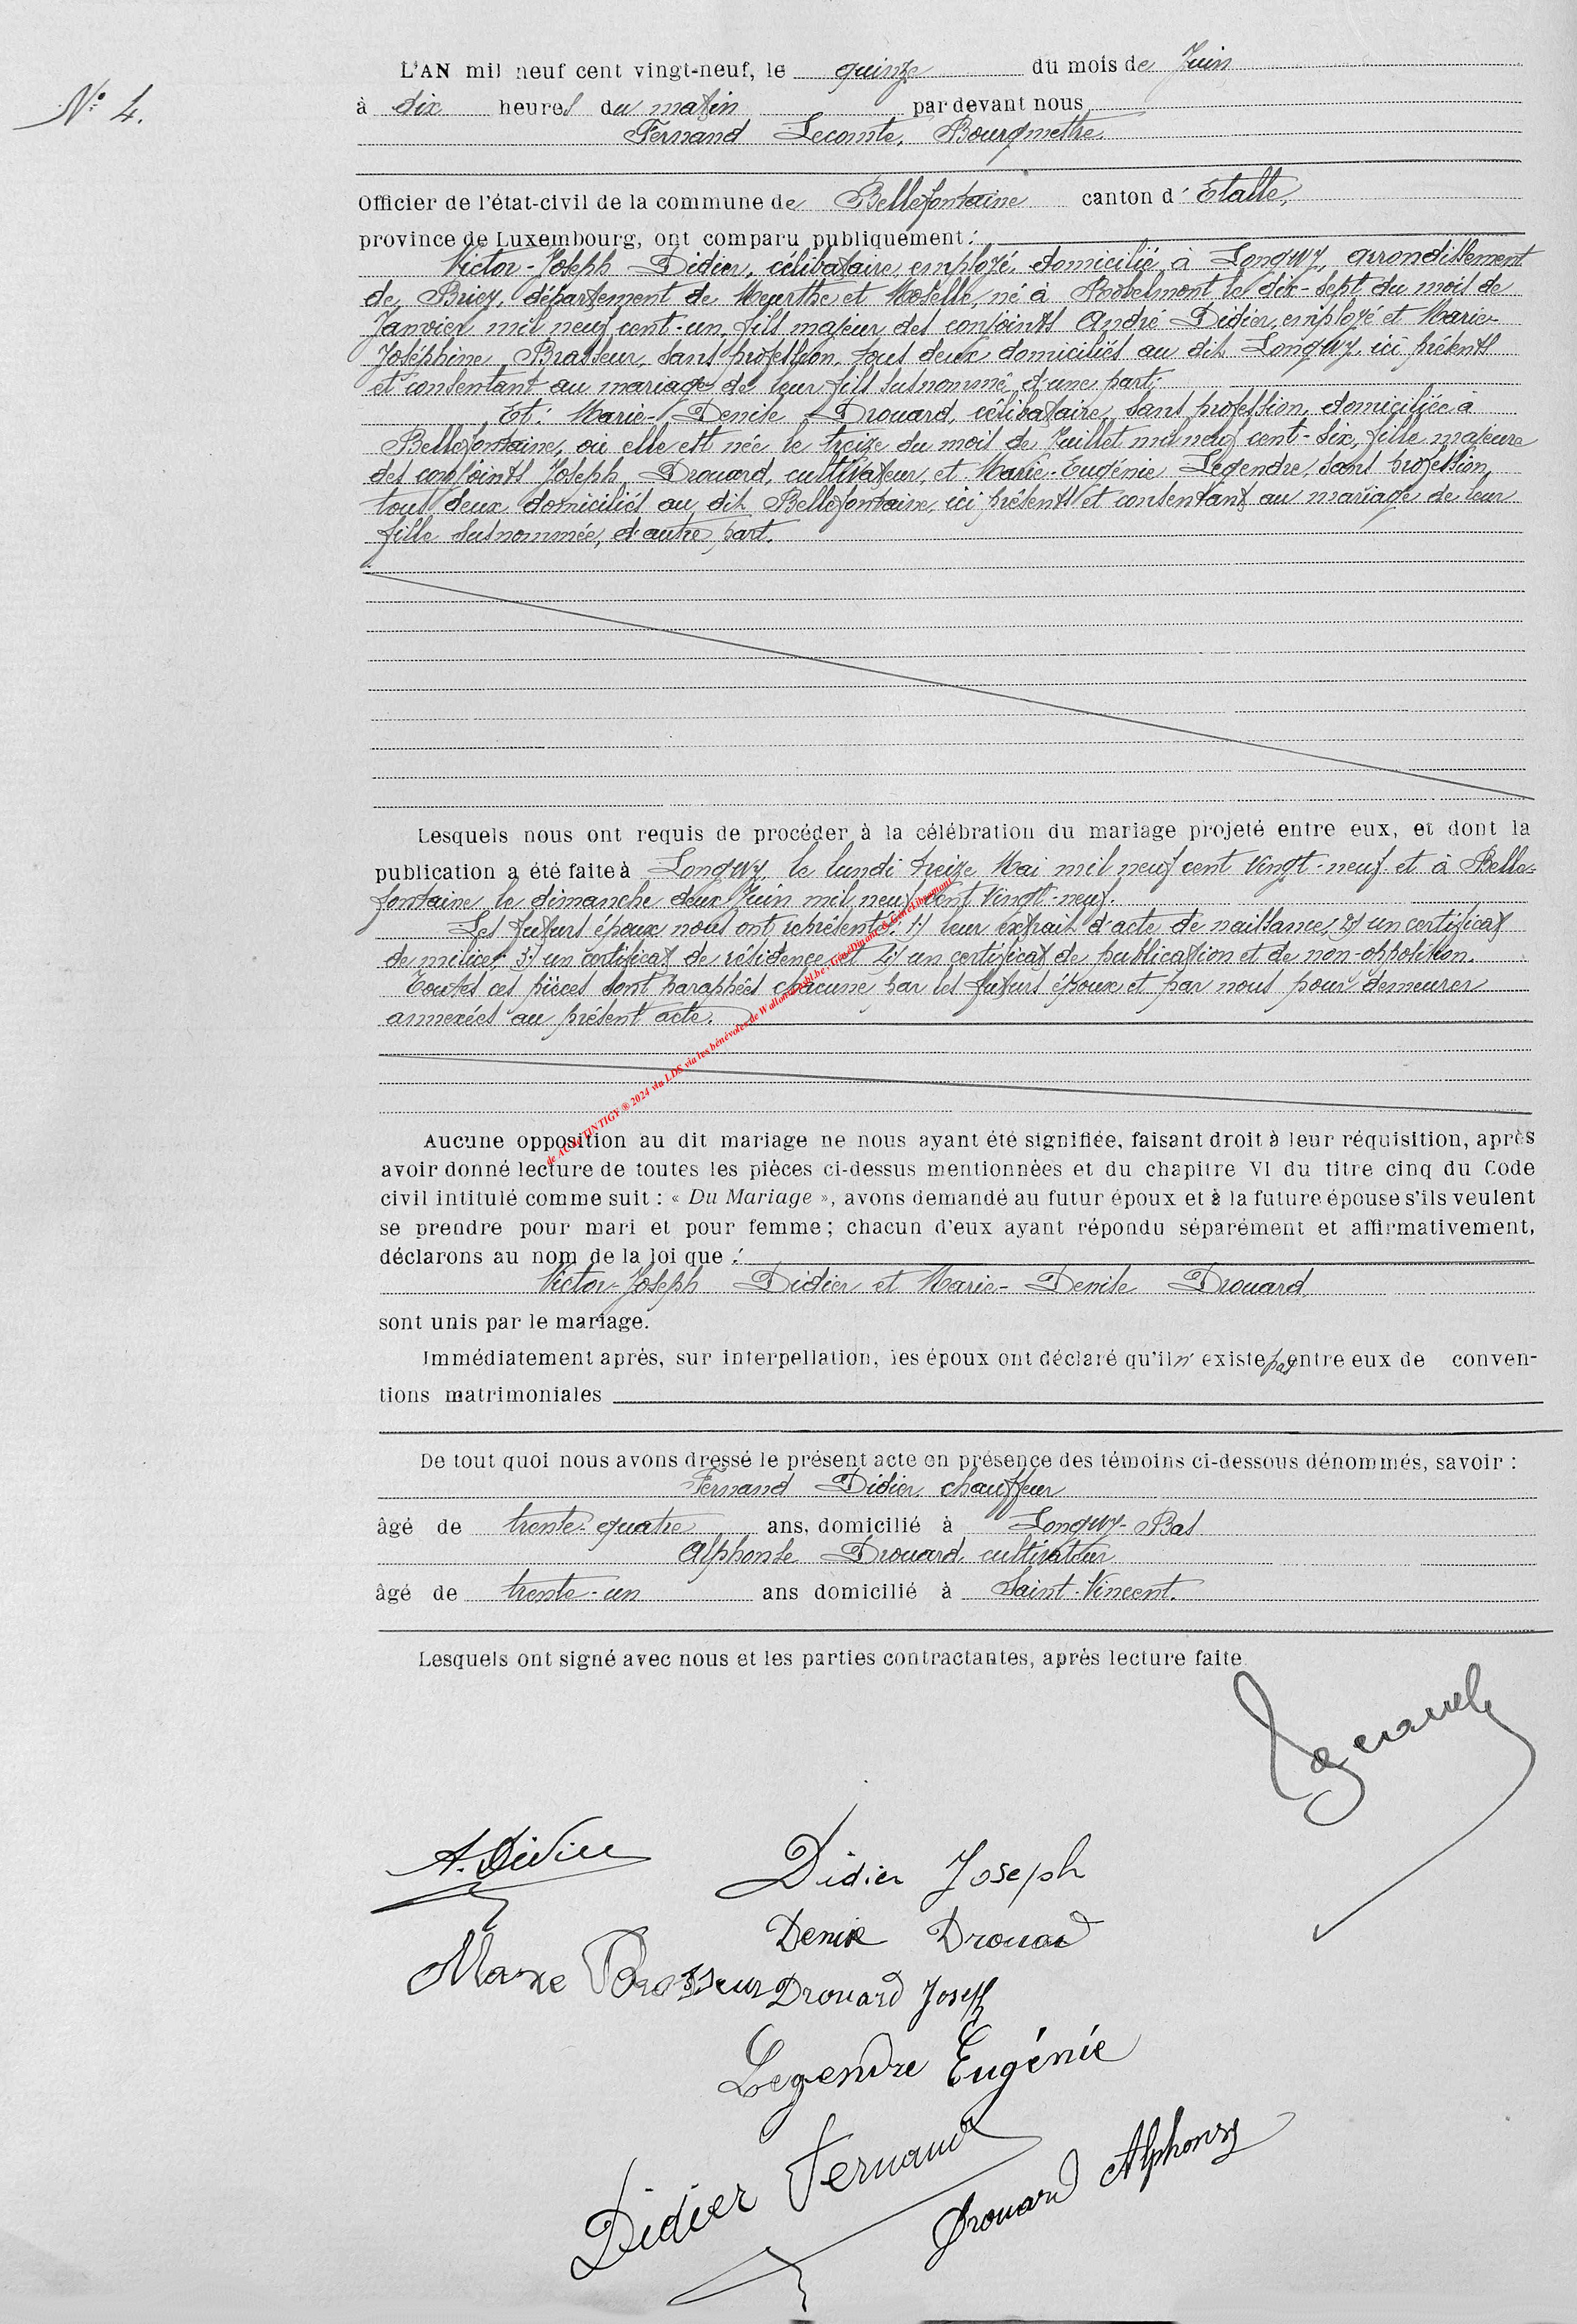 N° 4.
L'AN mil neuf cent vingt-neuf, le quinze du mois de Juin
à dix heures du matin par devant nous
Fernand Lecomte, Bourgmestre
Officier de l'état-civil de la commune de Bellefontaine canton d' Etalle,
province de Luxembourg, ont comparu publiquement :
Victor-Joseph Didier, célibataire, employé, domicilié à Longwy, arrondissement
de Briey, département de Meurthe et Moselle, né à Robelmont le dix-sept du mois de
Janvier mil neuf cent-un, fils majeur des conjoints André Didier, employé et Marie-
Joséphine Brasseur, sans profession, tous deux domiciliés au dit Longwy, ici présents
et consentant au mariage de leur fils susnommé d'une part;
Et: Marie-Denise Drouard, célibataire, sans profession, domiciliée à
Bellefontaine, où elle est née le treize du mois de Juillet mil neuf cent-six, fille majeure
des conjoints Joseph Drouard, cultivateur, et Marie-Eugénie Legendre, sans profession,
tous deux domiciliés au dit Bellefontaine, ici présents et consentant au mariage de leur
fille susnommée, d'autre part.
Lesquels nous ont requis de procéder à la célébration du mariage projeté entre eux, et dont la
publication a été faite à Longwy, le lundi treize Mai mil neuf cent vingt-neuf et à Belle-
fontaine, le dimanche deux Juin mil neuf cent vingt-neuf.
Les futurs époux nous ont représenté: 1) leur extrait d'acte de naissance; 2) un certificat
de milice; 3) un certificat de résidence et 4) un certificat de publication et de non-opposition.
Toutes ces pièces sont paraphées chacune par les futurs époux et par nous pour demeurer
annexées au présent acte.
de ACAI TINTIGY ® 2024 via LDS via les bénévoles de Wallonia asbl.be, GénéDinant & GénéLibramont
Aucune opposition au dit mariage ne nous ayant été signifiée, faisant droit à leur réquisition, après
avoir donné lecture de toutes les pièces ci-dessus mentionnées et du chapitre VI du titre cinq du Code
civil intitulé comme suit : « Du Mariage », avons demandé au futur époux et à la future épouse s'ils veulent
se prendre pour mari et pour femme ; chacun d'eux ayant répondu séparément et affirmativement,
déclarons au nom de la loi que :
Victor-Joseph Didier et Marie-Denise Drouard
sont unis par le mariage.
Immédiatement après, sur interpellation, les époux ont déclaré qu'il n'existe pas entre eux de conven-
tions matrimoniales
De tout quoi nous avons dressé le présent acte en présence des témoins ci-dessous dénommés, savoir :
Fernand Didier, chauffeur
âgé de trente-quatre ans, domicilié à Longwy-Bas
Alphonse Drouard, cultivateur
âgé de trente-un ans domicilié à Saint-Vincent.
Lesquels ont signé avec nous et les parties contractantes, après lecture faite
A. Didier
Didier Joseph
Denise Drouard
Marie Brasseur
Drouard Joseph
Legendre Eugénie
Didier Fernand
Drouard Alphonse